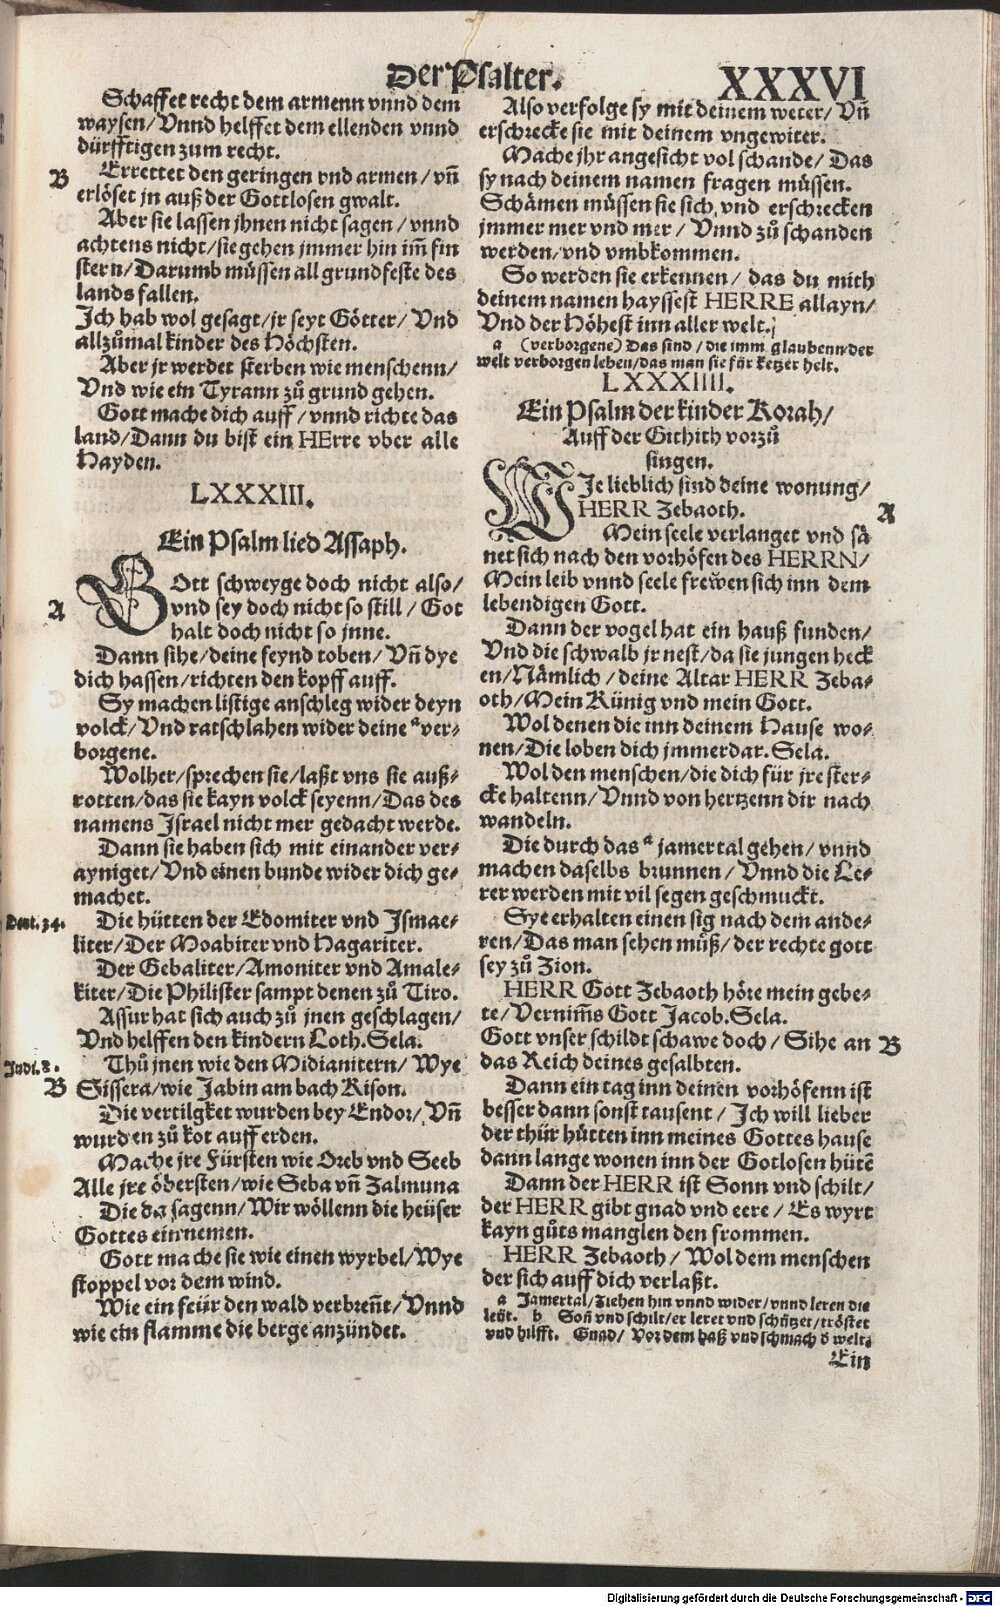 Der Psalter.
XXXVI
Schaffet recht dem armenn vnnd dem
waysen/ Vnnd helffet dem ellenden vnnd
dürfftigen zum recht.
B
Errettet den geringen vnd armen/ vñ
erlöset jn auß der Gottlosen gwalt.
Aber sie lassen jhnen nicht sagen/ vnnd
achtens nicht/ sie gehen jmmer hin im̃ fin
stern/ Darumb müssen all grundfeste des
lands fallen.
Ich hab wol gesagt/ jr seyt Götter/ Vnd
allzůmal kinder des Höchsten.
Aber jr werdet sterben wie menschenn/
Vnd wie ein Tyrann zů grund gehen.
Gott mache dich auff/ vnnd richte das
land/ Dann du bist ein HErre vber alle
Hayden.
LXXXIII.
Ein Psalm lied Assaph.
A
GOtt schweyge doch nicht also/
vnd sey doch nicht so still/ Got
halt doch nicht so jnne.
Dann sihe/ deine feynd toben/ Vñ dye
dich hassen/ richten den kopff auff.
Sy machen listige anschleg wider deyn
volck/ Vnd ratschlahen wider deine ᵃ ver-
borgene.
Wolher/ sprechen sie/ laßt vns sie auß-
rotten/ das sie kayn volck seyenn/ Das des
namens Israel nicht mer gedacht werde.
Dann sie haben sich mit einander ver-
ayniget/ Vnd einen bunde wider dich ge-
machet.
Deut. 34.
Die hütten der Edomiter vnd Ismae-
liter/ Der Moabiter vnd Hagariter.
Der Gebaliter/ Amoniter vnd Amale-
kiter/ Die Philister sampt denen zů Tiro.
Assur hat sich auch zů jnen geschlagen/
Vnd helffen den kindern Loth. Sela.
Judi. 8.
Thů jnen wie den Midianitern/ Wye
B
Sissera/ wie Jabin am bach Kison.
Die vertilgket wurden bey Endor/ Vñ
wurden zů kot auff erden.
Mache jre Fürsten wie Oreb vnd Seeb
Alle jre öbersten/ wie Seba vñ Zalmuna
Die da sagenn/ Wir wöllenn die heüser
Gottes einnemen.
Gott mache sie wie einen wyrbel/ Wye
stoppel vor dem wind.
Wie ein feür den wald verbreñt/ Vnnd
wie ein flamme die berge anzündet.
Also verfolge sy mit deinem weter/ Vñ
erschrecke sie mit deinem vngewiter.
Mache jhr angesicht vol schande/ Das
sy nach deinem namen fragen müssen.
Schämen müssen sie sich, vnd erschrecken
jmmer mer vnd mer/ Vnnd zů schanden
werden/ vnd vmbkommen.
So werden sie erkennen/ das du mith
deinem namen hayssest HERRE allayn/
Vnd der Höhest inn aller welt.
a (verborgene) Das sind/ die imm glaubenn der
welt verborgen leben/ das man sie für ketzer helt.
LXXXIIII.
Ein Psalm der kinder Korah/
Auff der Githith vorzů
singen.
WIe lieblich sind deine wonung/
HERR Zebaoth.
A
Mein seele verlanget vnd sä
net sich nach den vorhöfen des HERRN/
Mein leib vnnd seele frewen sich inn dem
lebendigen Gott.
Dann der vogel hat ein hauß funden/
Vnd die schwalb jr nest/ da sie jungen heck
en/ Nämlich/ deine Altar HERR Zeba-
oth/ Mein Künig vnd mein Gott.
Wol denen die inn deinem Hause wo-
nen/ Die loben dich jmmerdar. Sela.
Wol den menschen/ die dich für jre ster-
cke haltenn/ Vnnd von hertzenn dir nach
wandeln.
Die durch das ᵃ jamertal gehen/ vnnd
machen daselbs brunnen/ Vnnd die Le-
rer werden mit vil segen geschmuckt.
Sye erhalten einen sig nach dem ande-
ren/ Das man sehen můß/ der rechte gott
sey zů Zion.
HERR Gott Zebaoth höre mein gebe-
te/ Vernim̃s Gott Jacob. Sela.
Gott vnser schildt schawe doch/ Sihe an
B
das Reich deines gesalbten.
Dann ein tag inn deinen vorhöfenn ist
besser dann sonst tausent/ Ich will lieber
der thür hütten inn meines Gottes hause
dann lange wonen inn der Gotlosen hütẽ
Dann der HERR ist Sonn vnd schilt/
der HERR gibt gnad vnd eere/ Es wyrt
kayn gůts manglen den frommen.
HERR Zebaoth/ Wol dem menschen
der sich auff dich verlaßt.
a Jamertal/ Ziehen hin vnnd wider/ vnnd leren die
leüt. b Soñ vnd schilt/ er leret vnd schützet/ tröstet
vnd hilfft. Gnad/ Vor dem haß vnd schmach d welt.
Ein
Digitalisierung gefördert durch die Deutsche Forschungsgemeinschaft - DFG